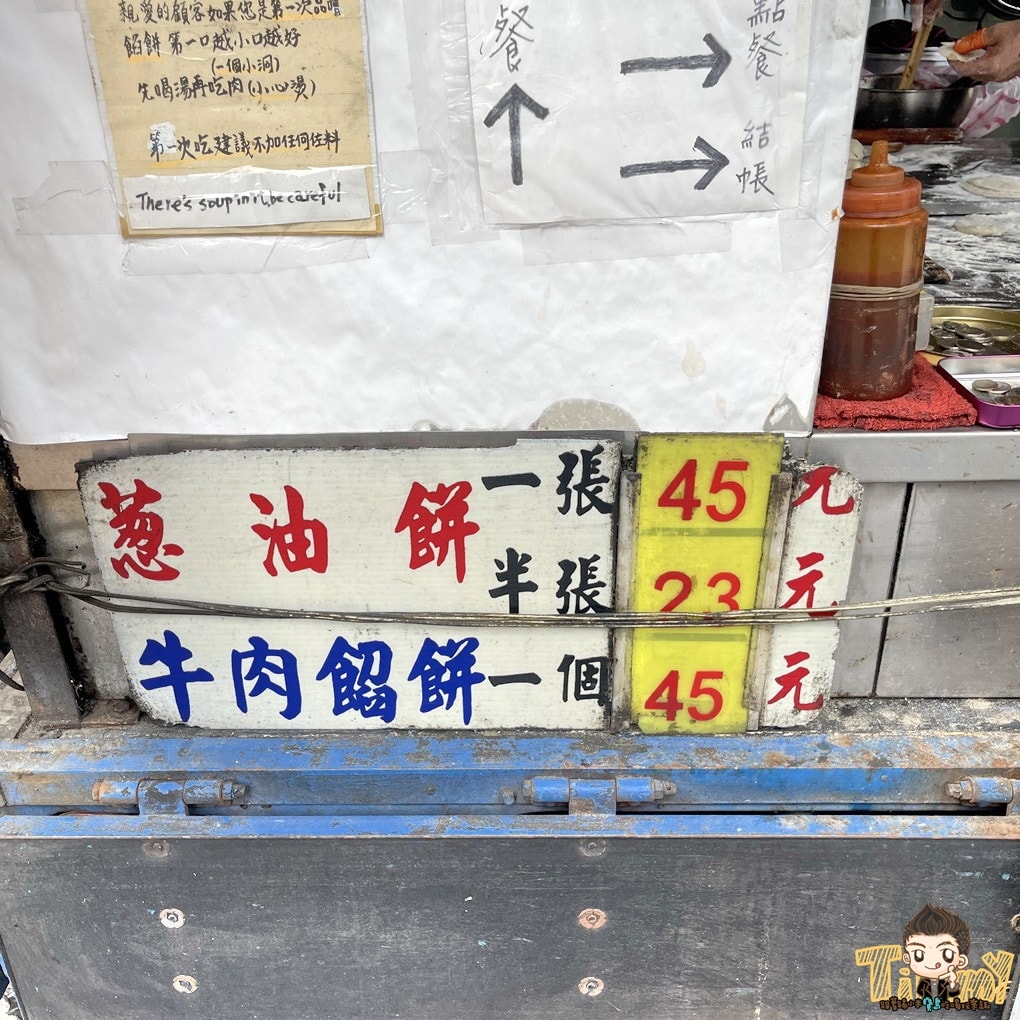 親愛的顧客如果您是第一次品嚐
餡餅 第一口越小口越好
(一個小洞)
先喝湯再吃肉(小心燙)
第一次吃建議不加任何佐料
There's soup in it, be careful
餐
點餐
結帳
蔥油餅 一張 45 元
半張 23 元
牛肉餡餅 一個 45 元
Tiny